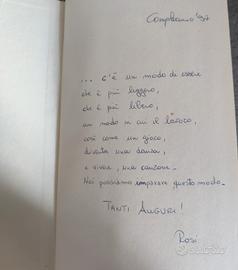 Compleanno '97
... c'è un modo di essere
che è più leggero,
che è più libero,
un modo in cui il lavoro,
così come un gioco,
diventa una danza,
e vivere, una canzone.
Noi possiamo imparare questo modo.
TANTI AUGURI!
Rosi
Subito